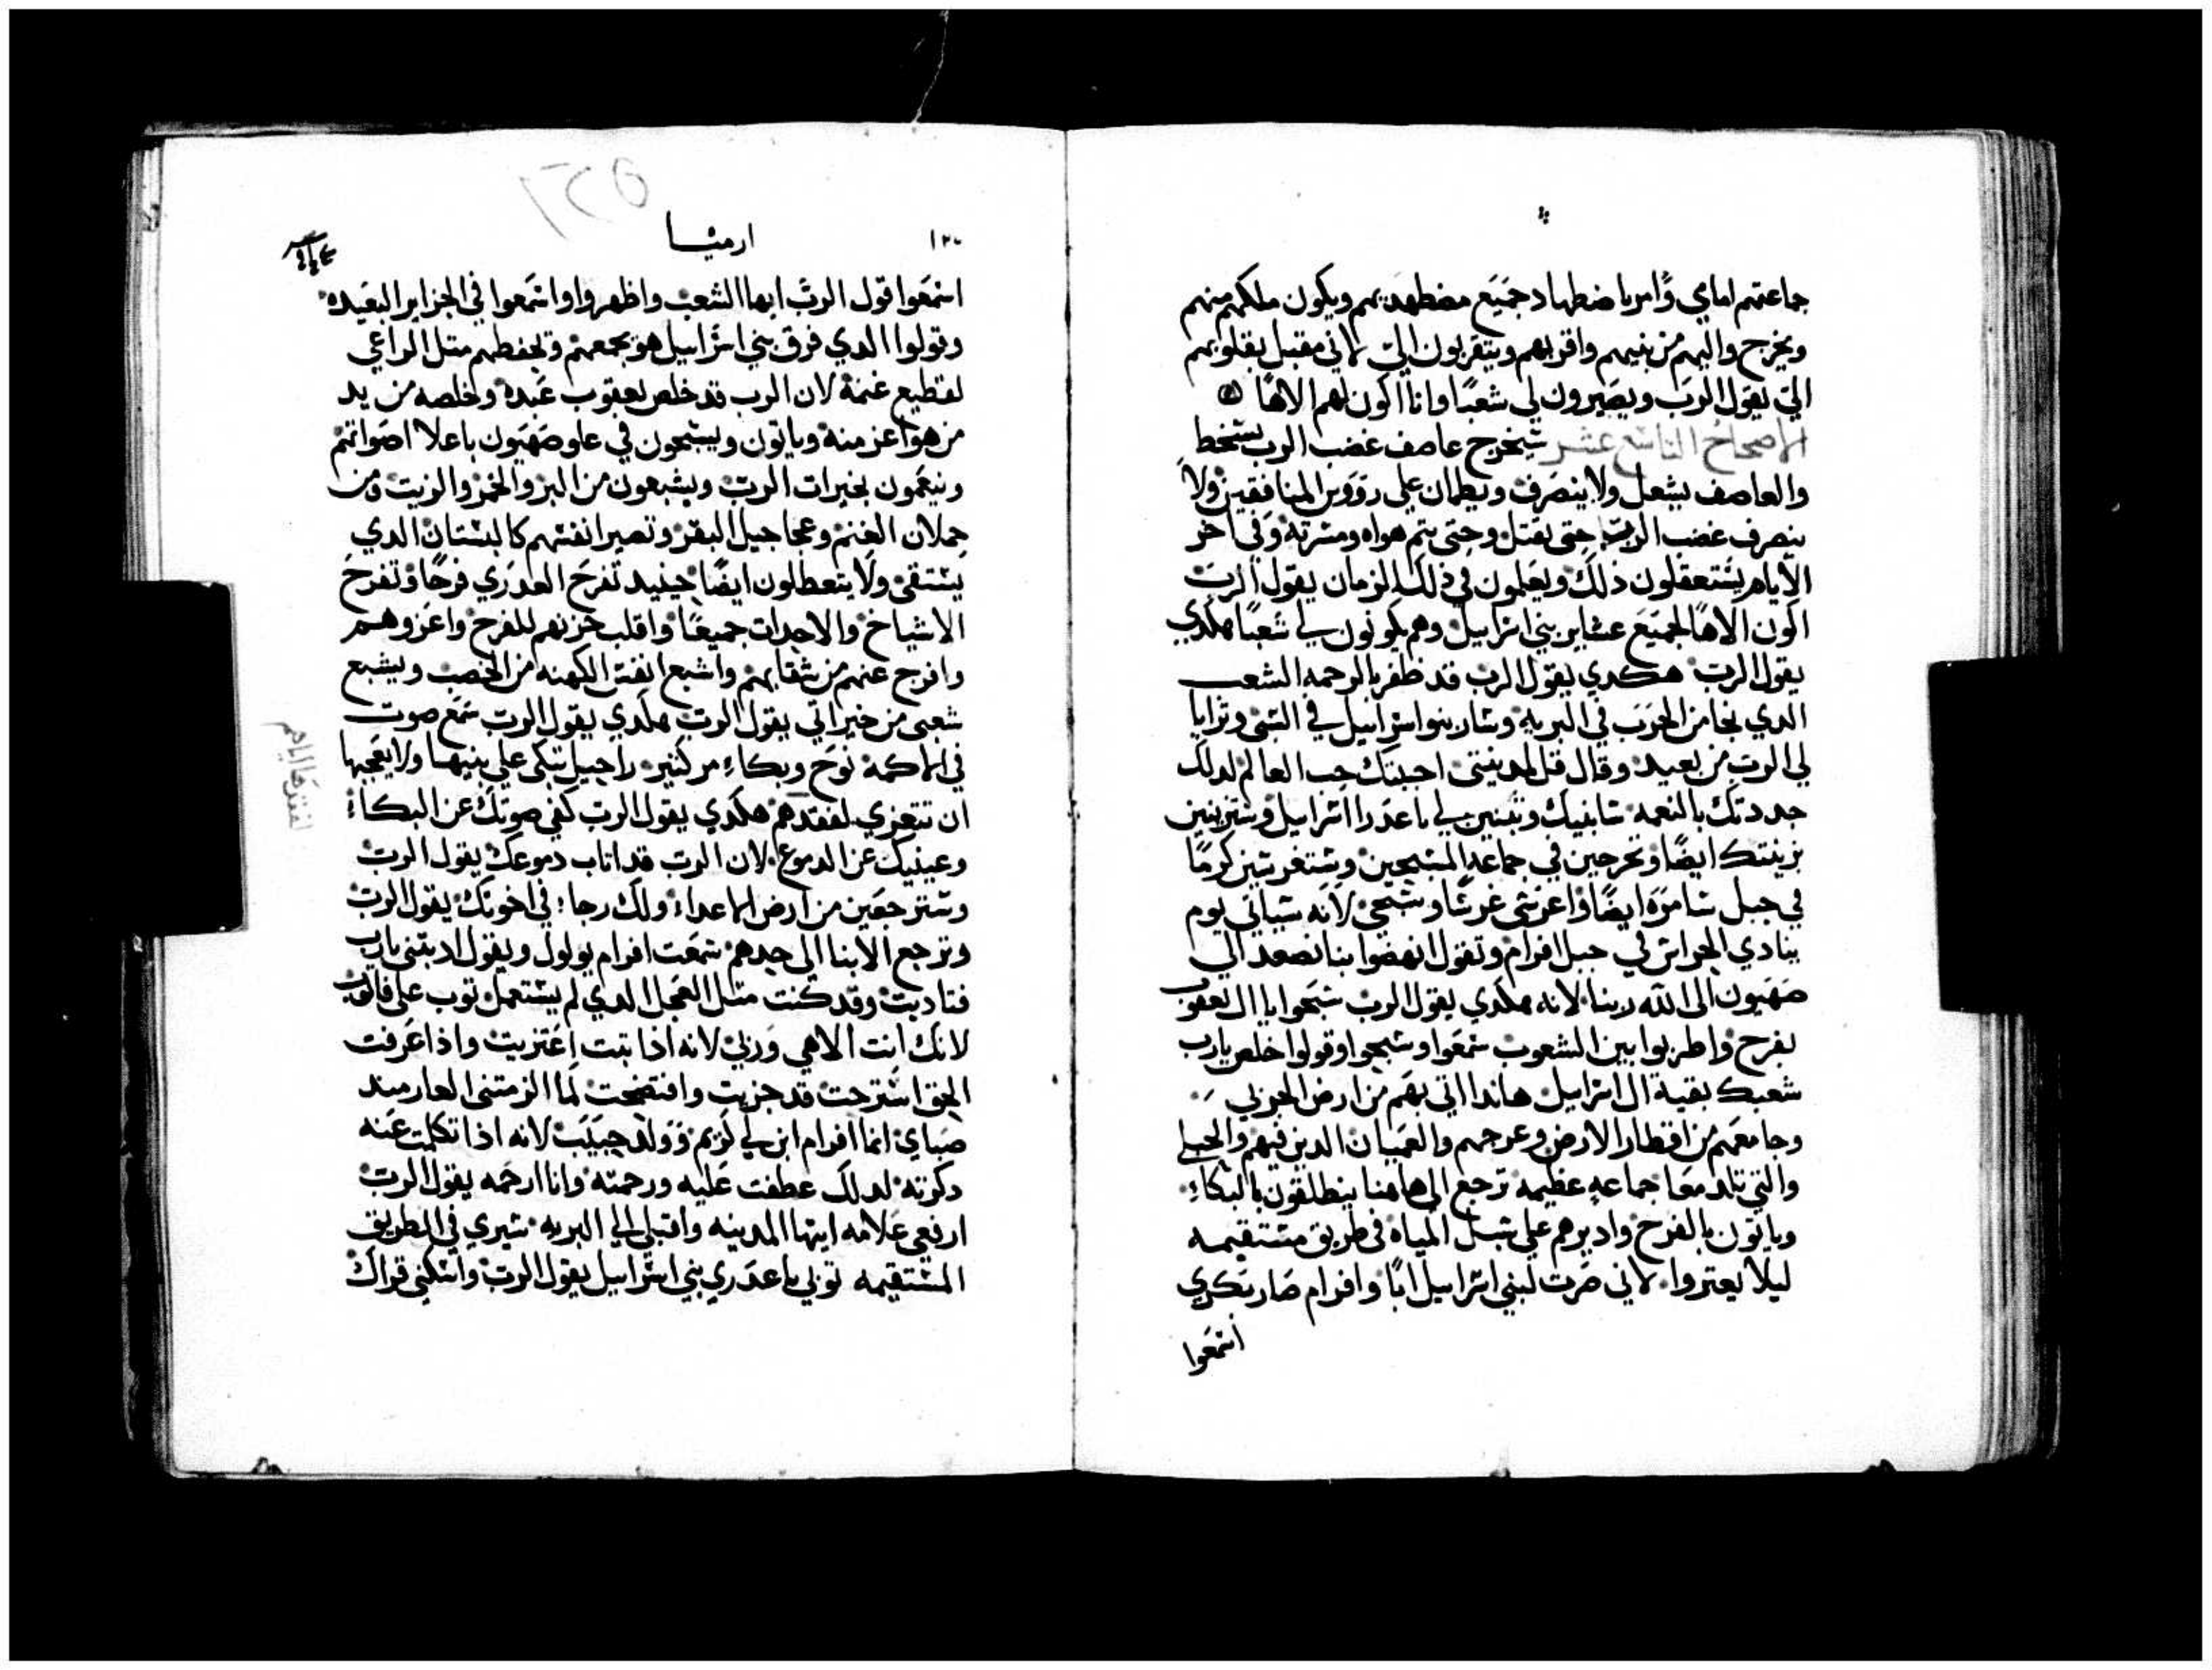 جماعتهم امامي وامر باضطهاد جميع مضطهديهم ويكون ملكهم منهم
ويخرج واليهم من بنيهم واقربهم ويتقربون الي لاني مقبل بقلوبهم
الي يقول الرب ويصيرون لي شعبًا وانا اكون لهم الاهًا
الاصحاح التاسع عشر سيخرج عاصف غضب الرب بسخط
والعاصف يشعل ولا ينصرف ويطمان علي رووس المنافقين ولا
ينصرف غضب الرب حتى يقتل وحتى يتم هواه ومسرته وفي اخر
الايام يستعقلون ذلك ويعلمون في ذلك الزمان يقول الرب
اكون الاهًا لجميع عشاير بني اسراييل وهم يكونون لي شعبًا هكدي
يقول الرب هكدي يقول الرب قد ظفر بالرحمه الشعب
الدي نجا من الحرب في البريه وسار بنوا اسراييل في السبى وترايا
لي الرب من بعيد وقال قل لمدينتي احببتك حب العالم لدلك
جددتك بالنعمه سابنيك وتبنين لي يا عدرا اسراييل وستزينين
بزينتك ايضًا وتخرجين في جماعة المسبحين وستغرسين كرمًا
في جبل سامره ايضًا واغرسى غرسًا وسبحي لانه سياتي يوم
ينادي الحراس في جبل افرام وتقول انهضوا بنا نصعد الي
صهيون الى الله ربنا لانه هكدي يقول الرب سبحوا يا ال يعقوب
بفرح واطربوا بين الشعوب سمعوا وسبحوا وقولوا خلص يارب
شعبك بقية ال اسراييل هاندا اتي بهم من ارض الحربي
وجامعهم من اقطار الارض وعرجهم والعميان الدين فيهم والحبلي
والتي تلد معًا جماعه عظيمه ترجع الى هاهنا ينطلقون بالبكاء
وياتون بالفرح وادبرهم علي سبل المياه في طريق مستقيمه
ليلا يعتروا لاني صرت لبني اسراييل ابًا وافرام صار بكري
اسمعوا
ارميا
اسمعوا قول الرب ايها الشعب واظهروا واسمعوا في الجزاير البعيده
وقولوا الدي فرق بني اسراييل هو يجمعهم ويحفظهم متل الراعي
لقطيع غنمه لان الرب قد خلص يعقوب عبده وخلصه من يد
من هو اعز منه وياتون ويسبحون في علو صهيون باعلا اصواتهم
وينعمون بخيرات الرب ويشبعون من البر والخمر والزيت ومن
حملان الغنم وعجاجيل البقر وتصير انفسهم كالبستان الدي
يستقى ولا يتعطلون ايضًا حينيد تفرح العدري فرحًا وتفرح
الاشياخ والاحدات جميعًا واقلب حزنهم للفرح واعزوهم
وافرج عنهم من شقايهم واشبع انفس الكهنه من الخصب ويشبع
شعبى من خيراتي يقول الرب هكدي يقول الرب سمع صوت
في الاكمه نوح وبكاء مر كتير راحيل تبكى علي بنيها ولا يعجبها
ان تتعزي لفقدهم هكدي يقول الرب كفي صوتك عن البكاء
وعينيك عن الدموع لان الرب قد اتاب دموعك يقول الرب
وسترجعين من ارض الاعداء ولك رجاء في اخوتك يقول الرب
وترجع الابنا الي حدهم سمعت افرام يولول ويقول ادبتنى يارب
فتادبت وقد كنت متل العجل الدي لم يستعمل توب علي فاتوب
لانك انت الاهي وربي لانه ادا تبت اعتربت واذا عرفت
الحق استرحت قد جزيت وافتضحت لما الزمتنى العار مند
صباي انما افرام ابن لي كريم وولد حبيب لانه اذا تكلمت عنه
دكرته لدلك عطفت عليه ورحمته وانا ارحمه يقول الرب
ارفعي علامه ايتها المدينه واقبلي الي البريه سيري في الطريق
المستقيمه توبي يا عدري بني اسراييل يقول الرب واسكني قراك